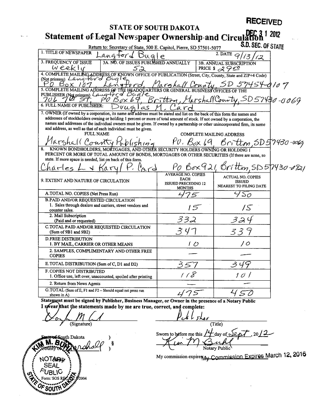 RECEIVED
DEC 31 2012
S.D. SEC. OF STATE
STATE OF SOUTH DAKOTA
Statement of Legal Newspaper Ownership and Circulation
Return to: Secretary of State, 500 E. Capitol, Pierre, SD 57501-5077
1. TITLE OF NEWSPAPER Langford Bugle 2. DATE 9/13/12
3. FREQUENCY OF ISSUE weekly
3A. NO. OF ISSUES PUBLISHED ANNUALLY 52
3B. ANNUAL SUBSCRIPTION PRICE $ 29.00
4. COMPLETE MAILING ADDRESS OF KNOWN OFFICE OF PUBLICATION (Street, City, County, State and ZIP+4 Code)
(Not printers) Langford Bugle
PO Box 137 Langford Marshall County, SD 57454-0107
5. COMPLETE MAILING ADDRESS OF THE HEADQUARTERS OR GENERAL BUSINESS OFFICES OF THE
PUBLISHER Langford Bugle
706 7th ST PO Box 69, Britton, Marshall County, SD 57430-0069
6. FULL NAME OF PUBLISHER: Douglas M. Card
7. OWNER (If owned by a corporation, its name and address must be stated and also immediately thereafter the names and
addresses of stockholders owning or holding 1 percent or more of total amount of stock. If not owned by a corporation, the
names and addresses of the individual owners must be given. If owned by a partnership or other unincorporated firm, its name
and address, as well as that of each individual must be given.
FULL NAME COMPLETE MAILING ADDRESS
Marshall County Publishing P.O. Box 69 Britton, SD 57430-0069
8. KNOWN BONDHOLDERS, MORTGAGEES, AND OTHER SECURITY HOLDERS OWNING OR HOLDING 1
PERCENT OR MORE OF TOTAL AMOUNT OF BONDS, MORTGAGES OR OTHER SECURITIES (If there are none, so
state. If more space is needed, list on back of this form.)
Charles L & Karyl P. Card PO Box 421, Britton, SD 57430-0421
9. EXTENT AND NATURE OF CIRCULATION
AVERAGE NO. COPIES EACH ISSUE PRECEDING 12 MONTHS
ACTUAL NO. COPIES ISSUED NEAREST TO FILING DATE
A. TOTAL NO. COPIES (Net Press Run) 475 450
B. PAID AND/OR REQUESTED CIRCULATION
1. Sales through dealers and carriers, street vendors and counter sales 15 15
2. Mail Subscription (Paid and or requested) 332 324
C. TOTAL PAID AND/OR REQUESTED CIRCULATION (Sum of 9B1 and 9B2) 347 339
D. FREE DISTRIBUTION
1. BY MAIL, CARRIER OR OTHER MEANS 10 10
2. SAMPLES, COMPLIMENTARY AND OTHER FREE COPIES
E. TOTAL DISTRIBUTION (Sum of C, D1 and D2) 357 349
F. COPIES NOT DISTRIBUTED
1. Office use, left over, unaccounted, spoiled after printing 118 101
2. Return from News Agents
G. TOTAL (Sum of E, F1 and F2 - Should equal net press run shown in A) 475 450
Statement must be signed by Publisher, Business Manager, or Owner in the presence of a Notary Public
I swear that the statements made by me are true, correct, and complete:
Publisher
(Signature) (Title)
State of South Dakota
Marshall
Sworn to before me this 14 day of Sept, 2012
Notary Public
My commission expires: My Commission Expires March 12, 2016
NOTARY
SEAL
PUBLIC
STATE OF SOUTH DAKOTA